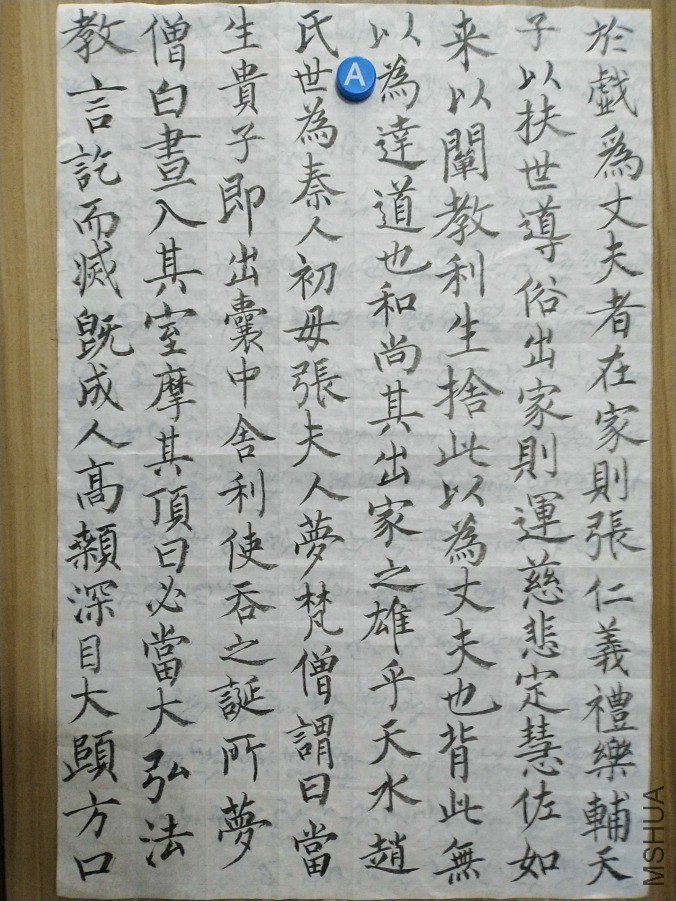 於戲為丈夫者在家則張仁義禮樂輔天
子以扶世導俗出家則運慈悲定慧佐如
来以闡教利生捨此以為丈夫也背此無
以為達道也和尚其出家之雄乎天水趙
氏世為秦人初毋張夫人夢梵僧謂曰當
生貴子即出囊中舍利使吞之誕所夢
僧白晝入其室摩其頂曰必當大弘法
教言訖而滅既成人高顙深目大頤方口
A
MSHUA